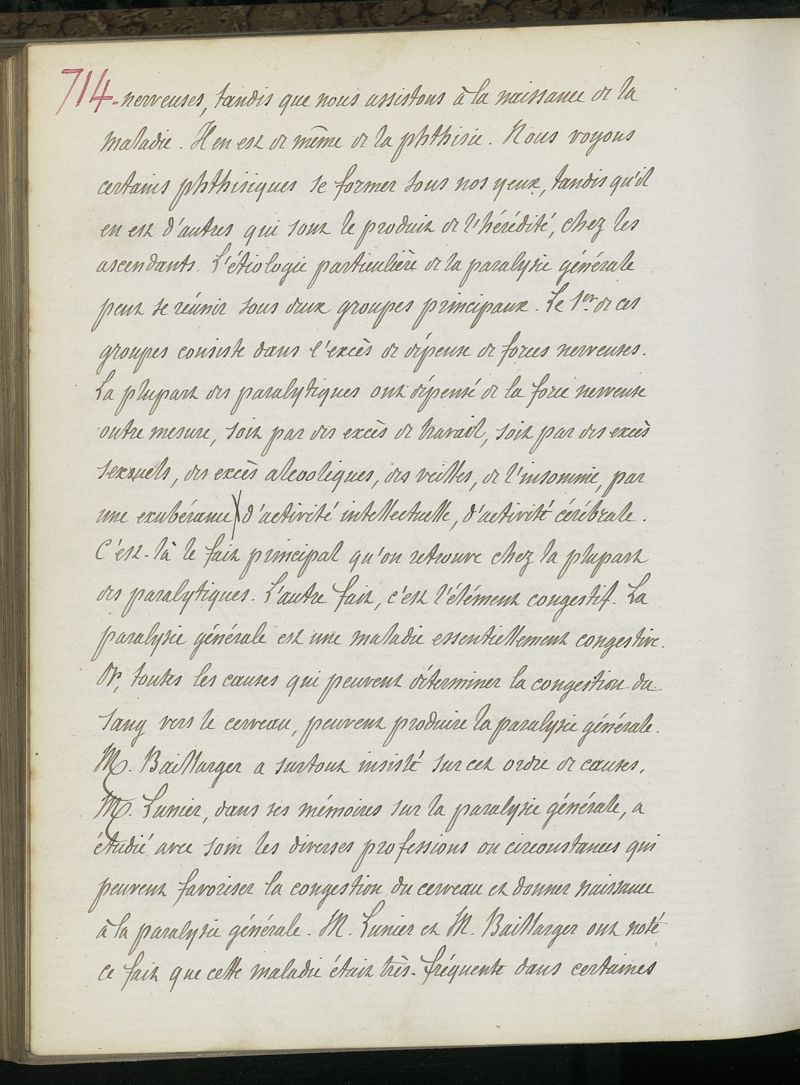 714 - nerveuses, tandis que nous assistons à la naissance de la
maladie. Il en est de même de la phthisie. Nous voyons
certains phthisiques se former sous nos yeux, tandis qu'il
en est d'autres qui sont le produit de l'hérédité, chez les
ascendants. L'étiologie particulière de la paralysie générale
peut se réunir sous deux groupes principaux. Le 1er de ces
groupes consiste dans l'excès de dépense de forces nerveuses.
La plupart des paralytiques ont dépensé de la force nerveuse
outre mesure, soit par des excès de travail, soit par des excès
sexuels, des excès alcooliques, des veilles, de l'insomnie, par
une exubérance d'activité intellectuelle, d'activité cérébrale.
C'est-là le fait principal qu'on retrouve chez la plupart
des paralytiques. L'autre fait, c'est l'élément congestif. La
paralysie générale est une maladie essentiellement congestive.
Or, toutes les causes qui peuvent déterminer la congestion du
sang vers le cerveau, peuvent produire la paralysie générale.
M. Baillarger a surtout insisté sur cet ordre de causes.
M. Lunier, dans ses mémoires sur la paralysie générale, a
étudié avec soin les diverses professions ou circonstances qui
peuvent favoriser la congestion du cerveau et donner naissance
à la paralysie générale. M. Lunier et M. Baillarger ont noté
ce fait que cette maladie était très-fréquente dans certaines